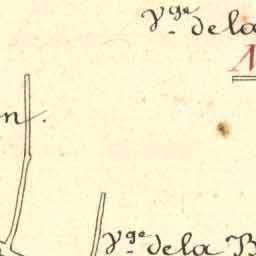 Vge de la
N
n.
Vge de la B